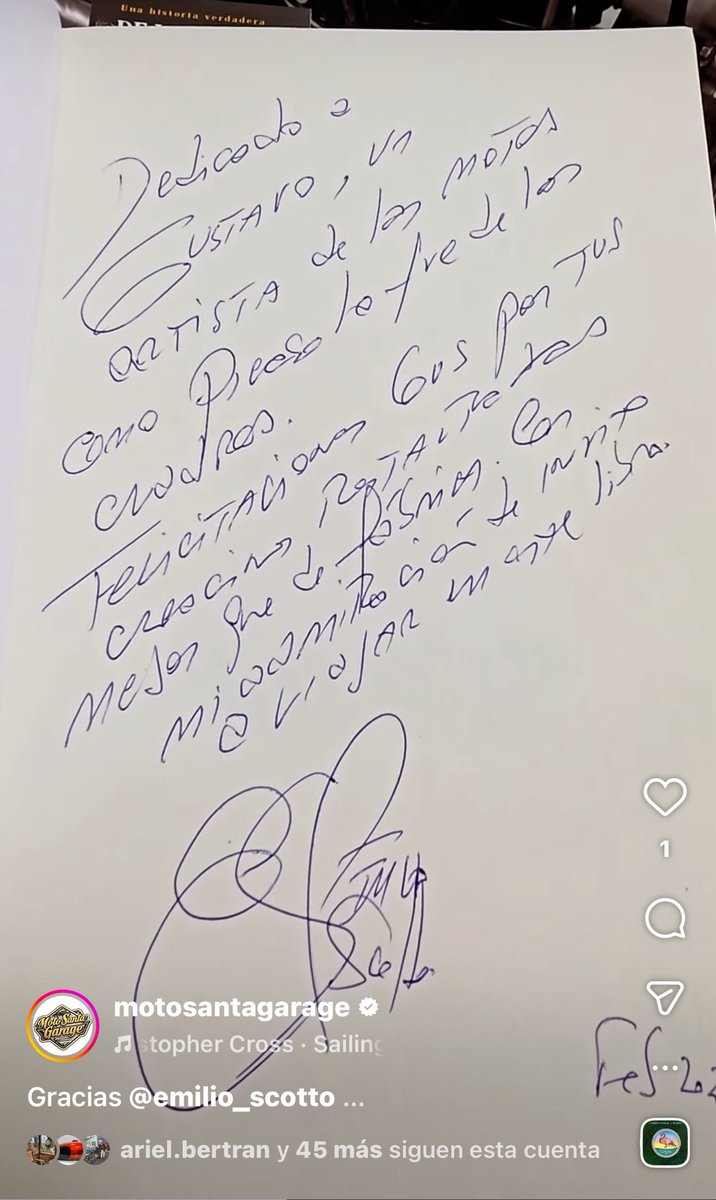 Una historia verdadera
Dedicado a
Gustavo, un
artista de las motos
como Picasso lo fue de los
cuadros.
Felicitaciones Gus por tus
creaciones, restauradas
mejor que de fábrica. Con
mi admiración te invito
a viajar en este libro.
Emilio
Scotto
Feb 202
motosantagarage
stopher Cross · Sailing
Gracias @emilio_scotto ...
ariel.bertran y 45 más siguen esta cuenta
1
Moto Santa
Garage